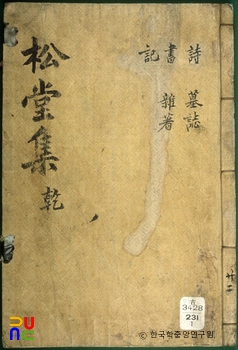 詩 墓誌
書 雜著
記
松堂集 乾
3428
231
1
ⓒ한국학중앙연구원